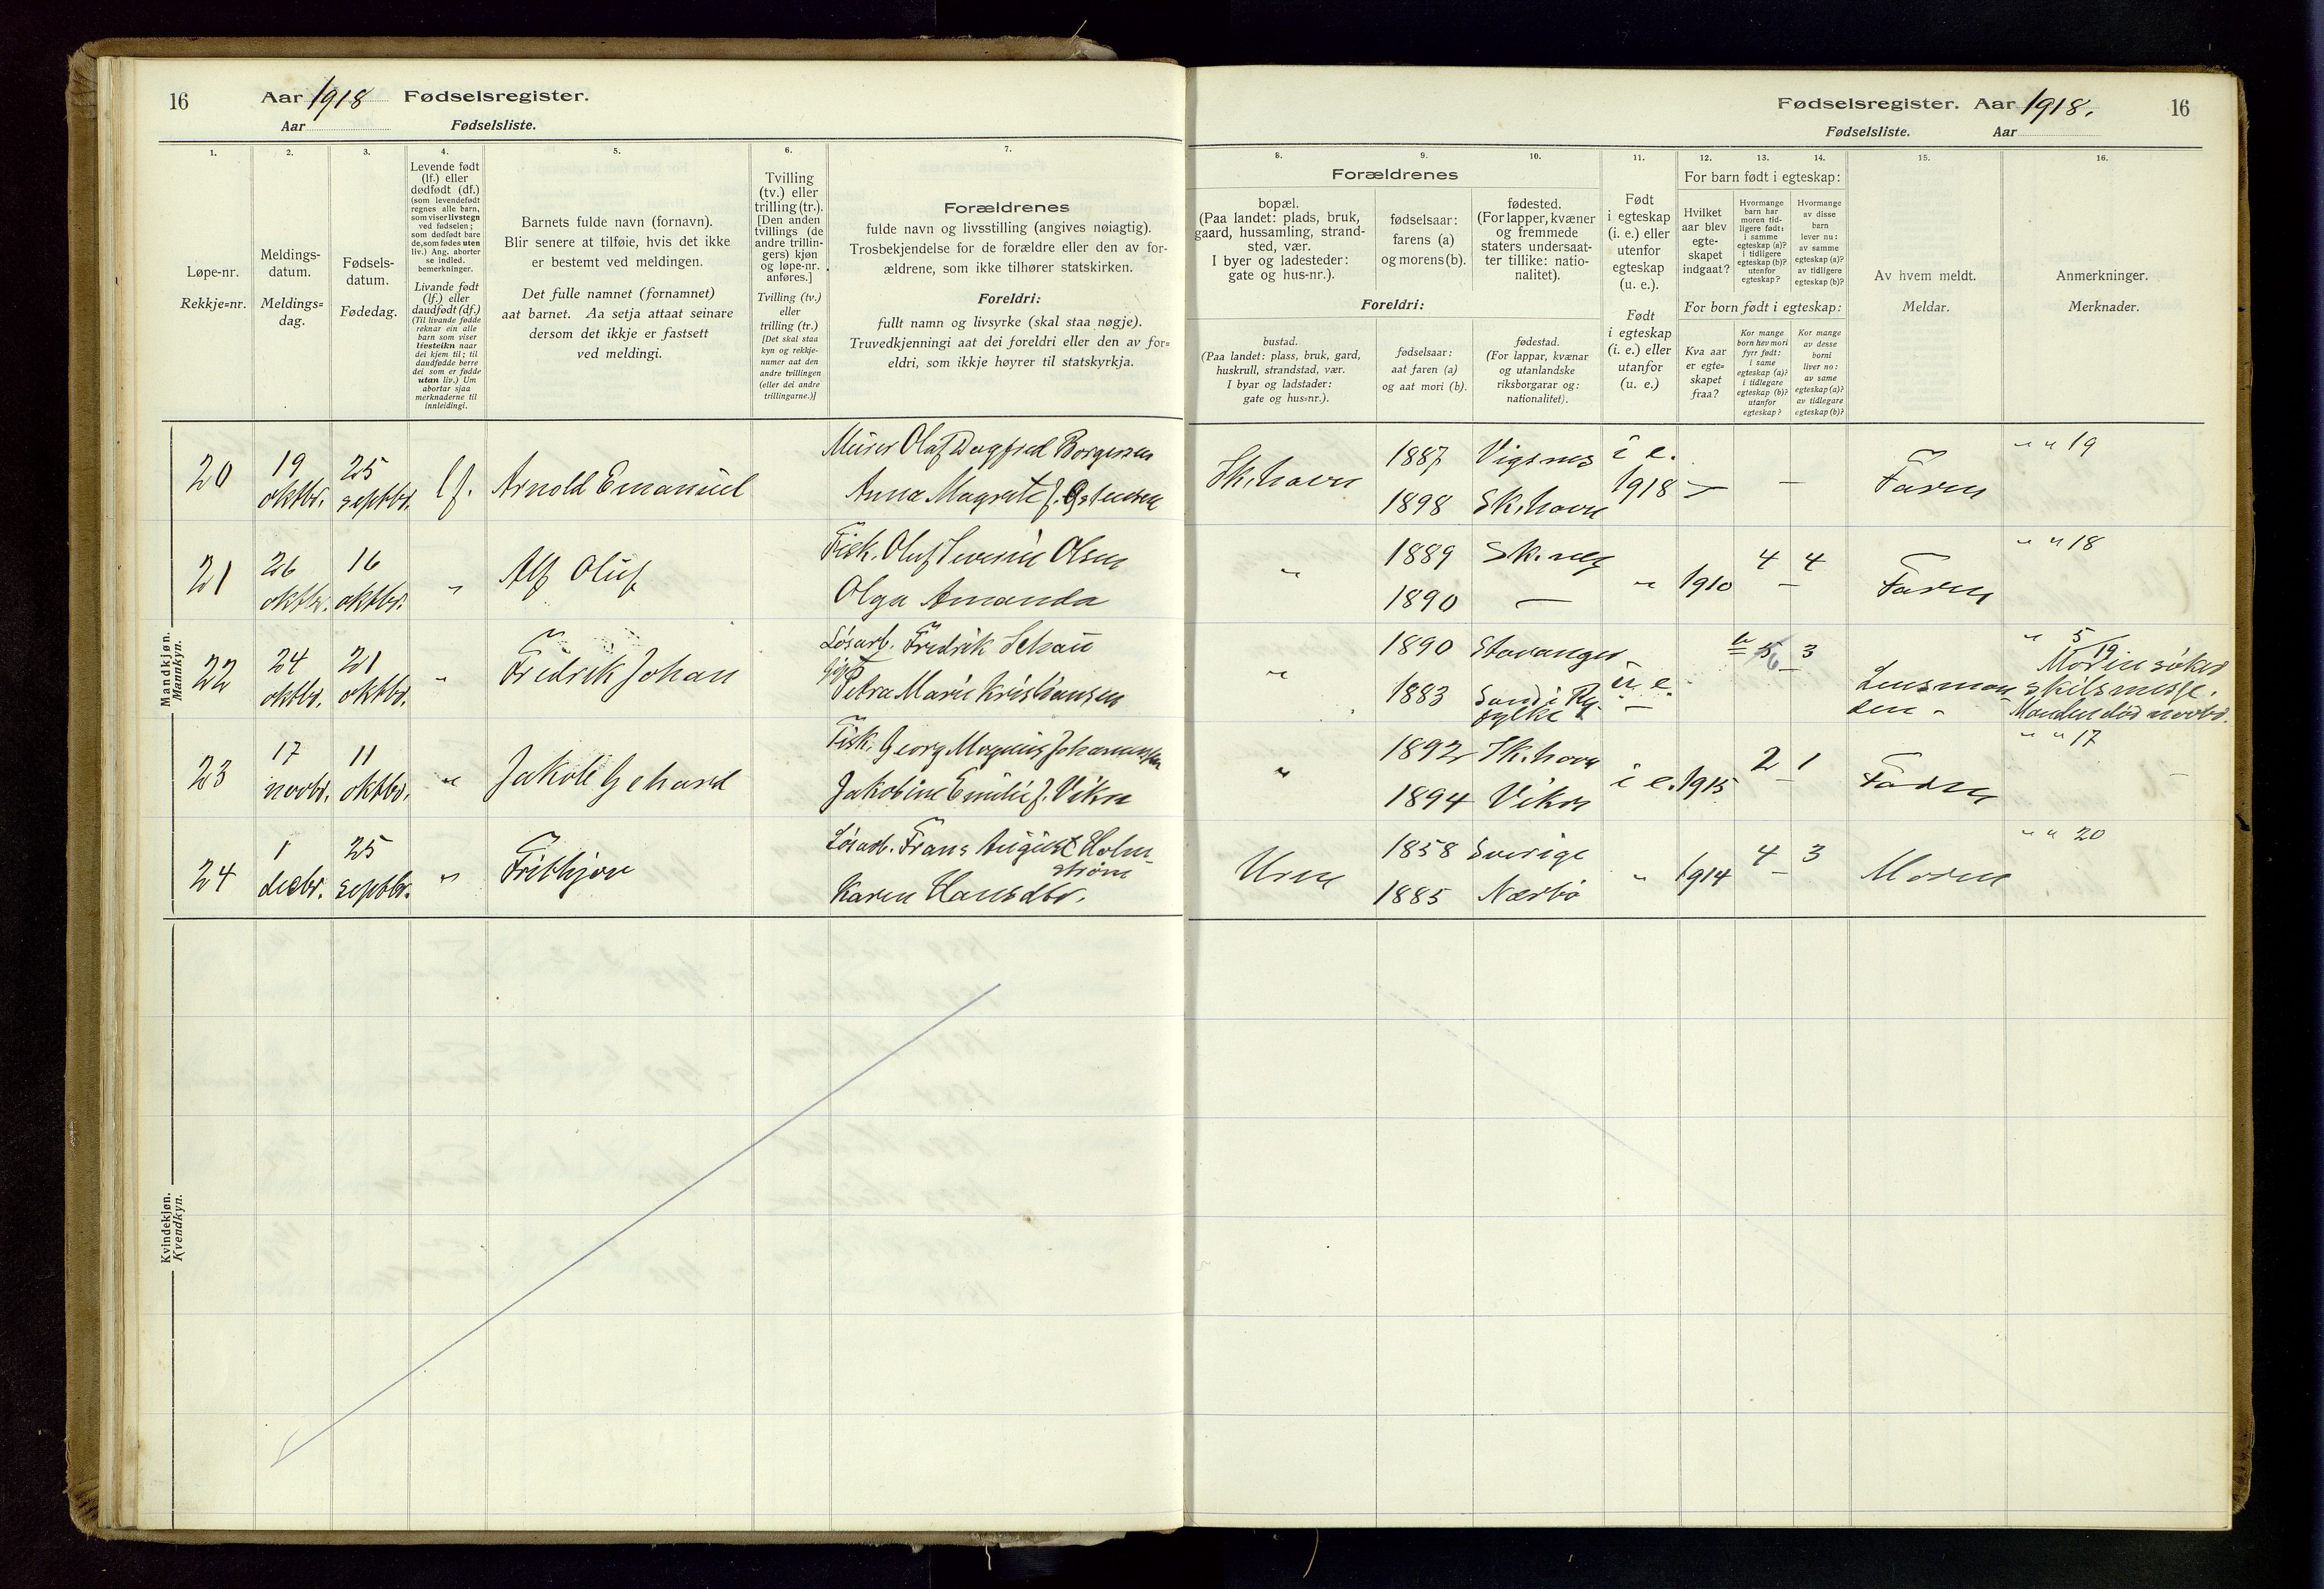 16 Aar 1918 Fødselsregister.
Aar Fødselsliste.
Fødselsregister. Aar 1918. 16
Fødselsliste. Aar
1. 2. 3. 4. 5. 6. 7. 8. 9. 10. 11. 12. 13. 14. 15. 16.
Løpe-nr.
Rekkje=nr.
Meldings-
datum.
Meldings=
dag.
Fødsels-
datum.
Fødedag.
Levende født
(lf.) eller
dødfødt (df.)
(som levendefødt
regnes alle barn,
som viser livstegn
ved fødselen;
som dødfødt bare
de, som fødes uten
liv.) Ang. aborter
se indled.
bemerkninger.
Livande født
(lf.) eller
daudfødt (df.)
(Til livande fødde
reknar ein alle
barn som viser
livsteikn naar
dei kjem til; til
daudfødde berre
dei som er fødde
utan liv.) Um
abortar sjaa
merknaderne til
innleidingi.
Barnets fulde navn (fornavn).
Blir senere at tilføie, hvis det ikke
er bestemt ved meldingen.
Det fulle namnet (fornamnet)
aat barnet. Aa setja attaat seinare
dersom det ikkje er fastsett
ved meldingi.
Tvilling
(tv.) eller
trilling (tr.).
[Den anden
tvillings (de
andre trillin-
gers) kjøn
og løpe-nr.
anføres.]
Tvilling (tv.)
eller
trilling (tr.)
[Det skal staa
kyn og rekkje-
numer aat den
andre tvillingen
(eller dei andre
trillingarne.)]
Forældrenes
fulde navn og livsstilling (angives nøiagtig).
Trosbekjendelse for de forældre eller den av for-
ældrene, som ikke tilhører statskirken.
Foreldri:
fullt namn og livsyrke (skal staa nøgje).
Truvedkjenningi aat dei foreldri eller den av for=
eldri, som ikkje høyrer til statskyrkja.
Forældrenes
bopæl.
(Paa landet: plads, bruk,
gaard, hussamling, strand-
sted, vær.
I byer og ladesteder:
gate og hus-nr.).
fødselsaar:
farens (a)
og morens (b).
fødested.
(For lapper, kvæner
og fremmede
staters undersaat-
ter tillike: natio-
nalitet).
Foreldri:
bustad.
(Paa landet: plass, bruk, gard,
huskrull, strandstad, vær.
I byar og ladstader:
gate og hus=nr.).
fødselsaar:
aat faren (a)
og aat mori (b).
fødestad.
(For lappar, kvænar
og utanlandske
riksborgarar og:
nationalitet).
Født
i egteskap
(i. e.) eller
utenfor
egteskap
(u. e.).
Født
i egteskap
(i. e.) eller
utanfor
(u. e.)
For barn født i egteskap:
Hvilket
aar blev
egte-
skapet
indgaat?
Hvormange
barn har
moren tid-
ligere født:
i samme
egteskap (a)?
i tidligere
egteskap (b)?
utenfor
egteskap?
Hvormange
av disse
barn
lever nu:
av samme
egteskap (a)?
av tidligere
egteskap (b)?
For born født i egteskap:
Kva aar
er egte=
skapet
fraa?
Kor mange
born hev mori
fyrr født:
i same
egteskap (a)?
i tidlegare
egteskap (b)?
utanfor
egteskap?
Kor mange
av desse
borni
liver no:
av same
egteskap (a)?
av tidlegare
egteskap (b)?
Av hvem meldt.
Meldar.
Anmerkninger.
Merknader.
Mandkjøn.
Mannkyn.
20 19 oktbr. 25 septbr. lf. Arnold Emanuel
Murer Olaf Dagfred Borgersen
Anna Magrete f. Gstensen
Sk.havn 1887 Vigsnes i e. — — Faren " " 19
1898 Sk.havn 1918
21 26 oktbr. 16 oktbr. " Alf Oluf
Fisk. Oluf Severin Olsen
Olga Amanda
" 1889 Sk.nes " 1910 4 4 Faren " " 18
1890 —
22 24 oktbr. 21 oktbr. " Fredrik Johan
Løsarb. Fredrik Schau
gift Petra Marie Kristiansen
" 1890 Stavanger u e. 5 6 3 Lensmanden " 5
1883 Sand i Ryfylke 19
Moren søker
skilsmisse.
Manden død novbr.
23 17 novbr. 11 oktbr. " Jakob Gehard
Fisk. Georg Magnus Johannessen
Jakobine Emilie f. Vikre
" 1892 Sk.havn i e. 1915 2 1 Faderen " " 17
1894 Vikre
24 1 decbr. 25 septbr. " Frithjov
Løsarb. Frans August Holm-
strøm
Karen Hansdtr.
1858 Sverige " 1914 4 3 Moren " " 20
1885 Nærbø
Kvindekjøn.
Kvendkyn.